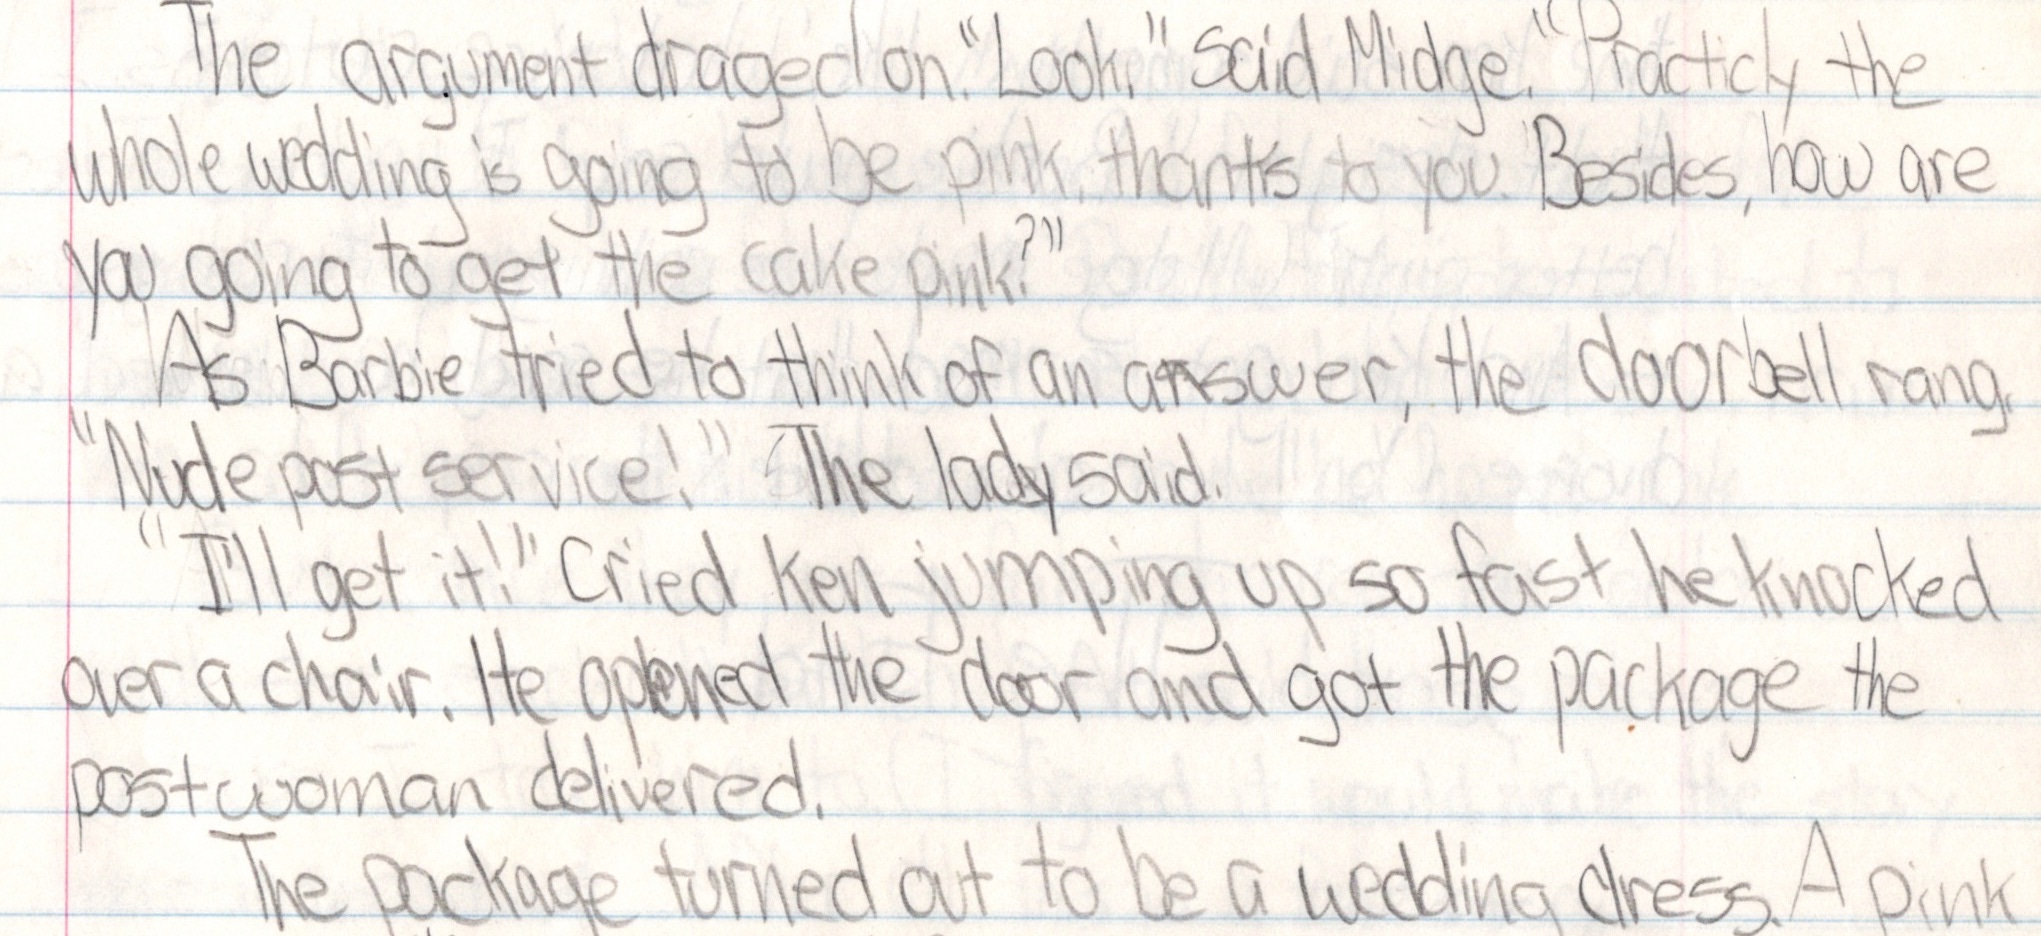 The argument draged on. "Look." Said Midge. "Practicly the
whole wedding is going to be pink, thanks to you. Besides, how are
you going to get the cake pink?"
As Barbie tried to think of an answer, the doorbell rang.
"Nude post service!" The lady said.
"I'll get it!" Cried Ken jumping up so fast he knocked
over a chair. He opened the door and got the package the
postwoman delivered.
The package turned out to be a wedding dress. A pink